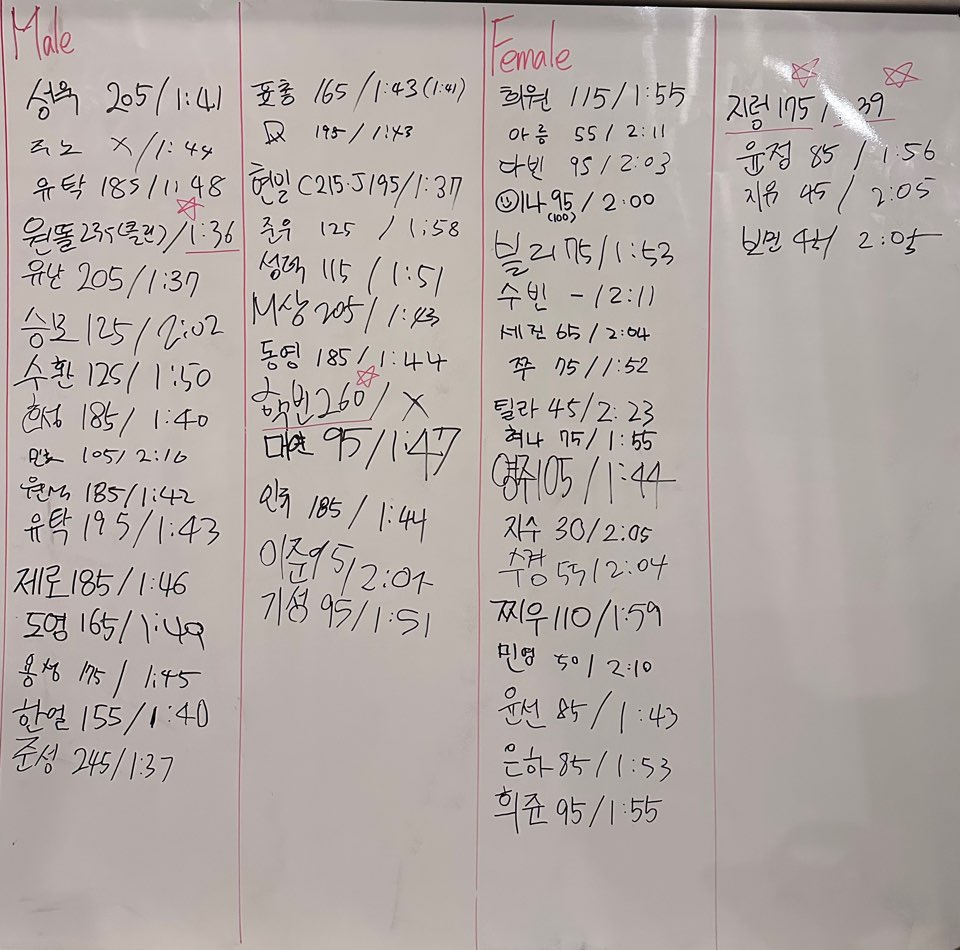 Male
성욱 205/1:41
리노 X/1:44
유탁 185/1:48
원똘 235(클린)/1:36
유난 205/1:37
승모 125/2:02
수환 125/1:50
한성 185/1:40
민호 105/2:10
원석 185/1:42
유탁 195/1:43
제로 185/1:46
도영 165/1:49
용성 175/1:45
한얼 155/1:40
준성 245/1:37
표홍 165/1:43(1:41)
195/1:43
현일 C215·J195/1:37
준우 125/1:58
성덕 115/1:51
M상 205/1:43
동영 185/1:44
학빈 260/X
대연 95/1:47
185/1:44
이준 95/2:07
기성 95/1:51
Female
희원 115/1:55
아름 55/2:11
다빈 95/2:03
이나 95/2:00
(100)
블리 75/1:53
수빈 -/2:11
세진 65/2:04
쭈 75/1:52
틸라 45/2:23
혀나 75/1:55
영주 105/1:44
지수 30/2:05
수경 55/2:04
찌우 110/1:59
민영 50/2:10
윤선 85/1:43
은하 85/1:53
희준 95/1:55
지렁 175/39
윤정 85/1:56
지유 45/2:05